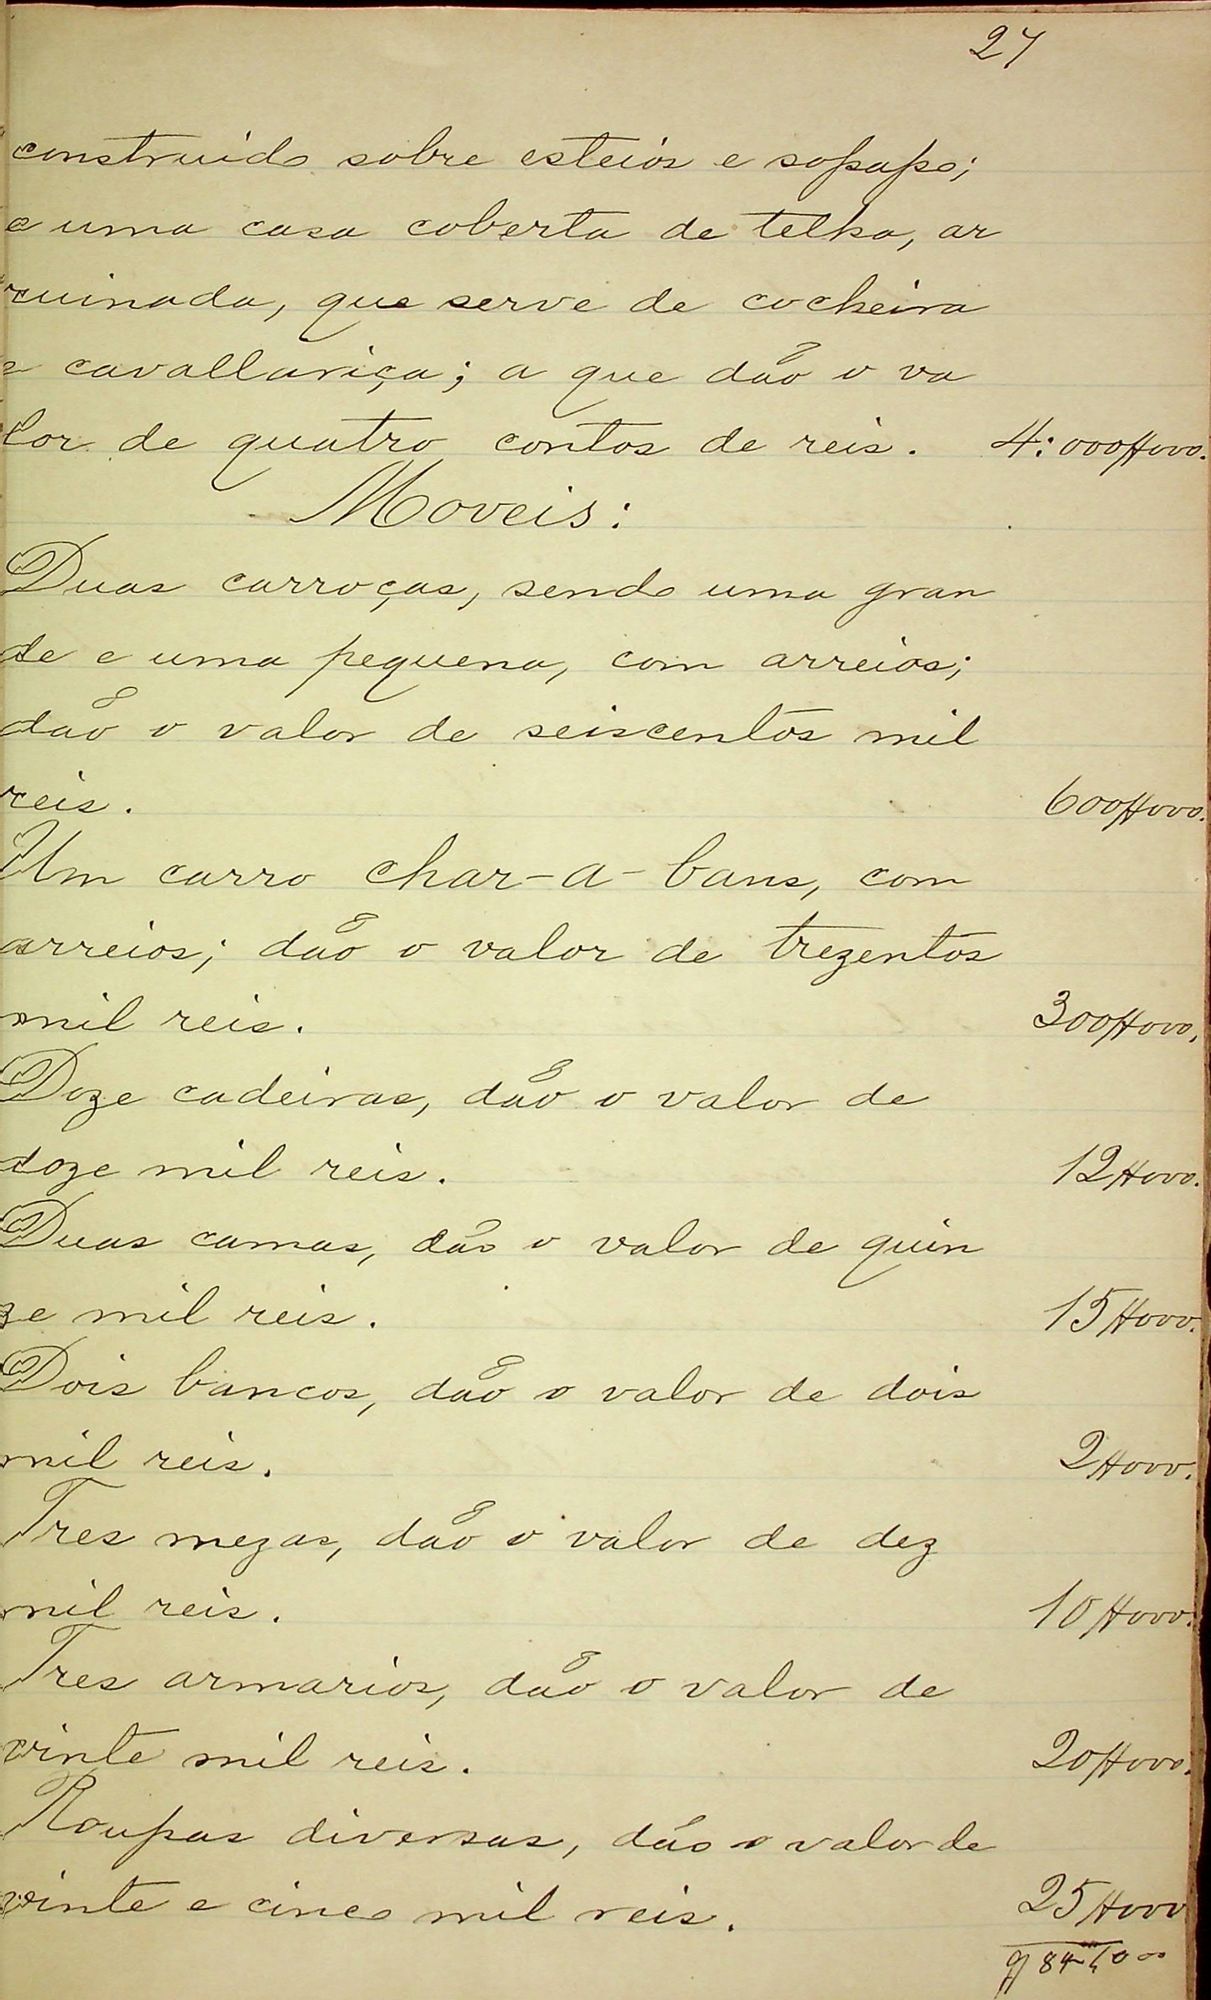 27
construido sobre esteios e sopapo;
e uma casa coberta de telha, ar
ruinada, que serve de cocheira
e cavallariça; a que dão o va
lor de quatro contos de reis. 4:000$000.
Moveis:
Duas carroças, sendo uma gran
de e uma pequena, com arreios;
dão o valor de seiscentos mil
reis. 600$000.
Um carro char-a-bans, com
arreios; dão o valor de trezentos
mil reis. 300$000.
Doze cadeiras, dão o valor de
doze mil reis. 12$000.
Duas camas, dão o valor de quin
ze mil reis. 15$000.
Dois bancos, dão o valor de dois
mil reis. 2$000.
Tres mezas, dão o valor de dez
mil reis. 10$000.
Tres armarios, dão o valor de
vinte mil reis. 20$000.
Roupas diversas, dão o valor de
vinte e cinco mil reis. 25$000
984$000